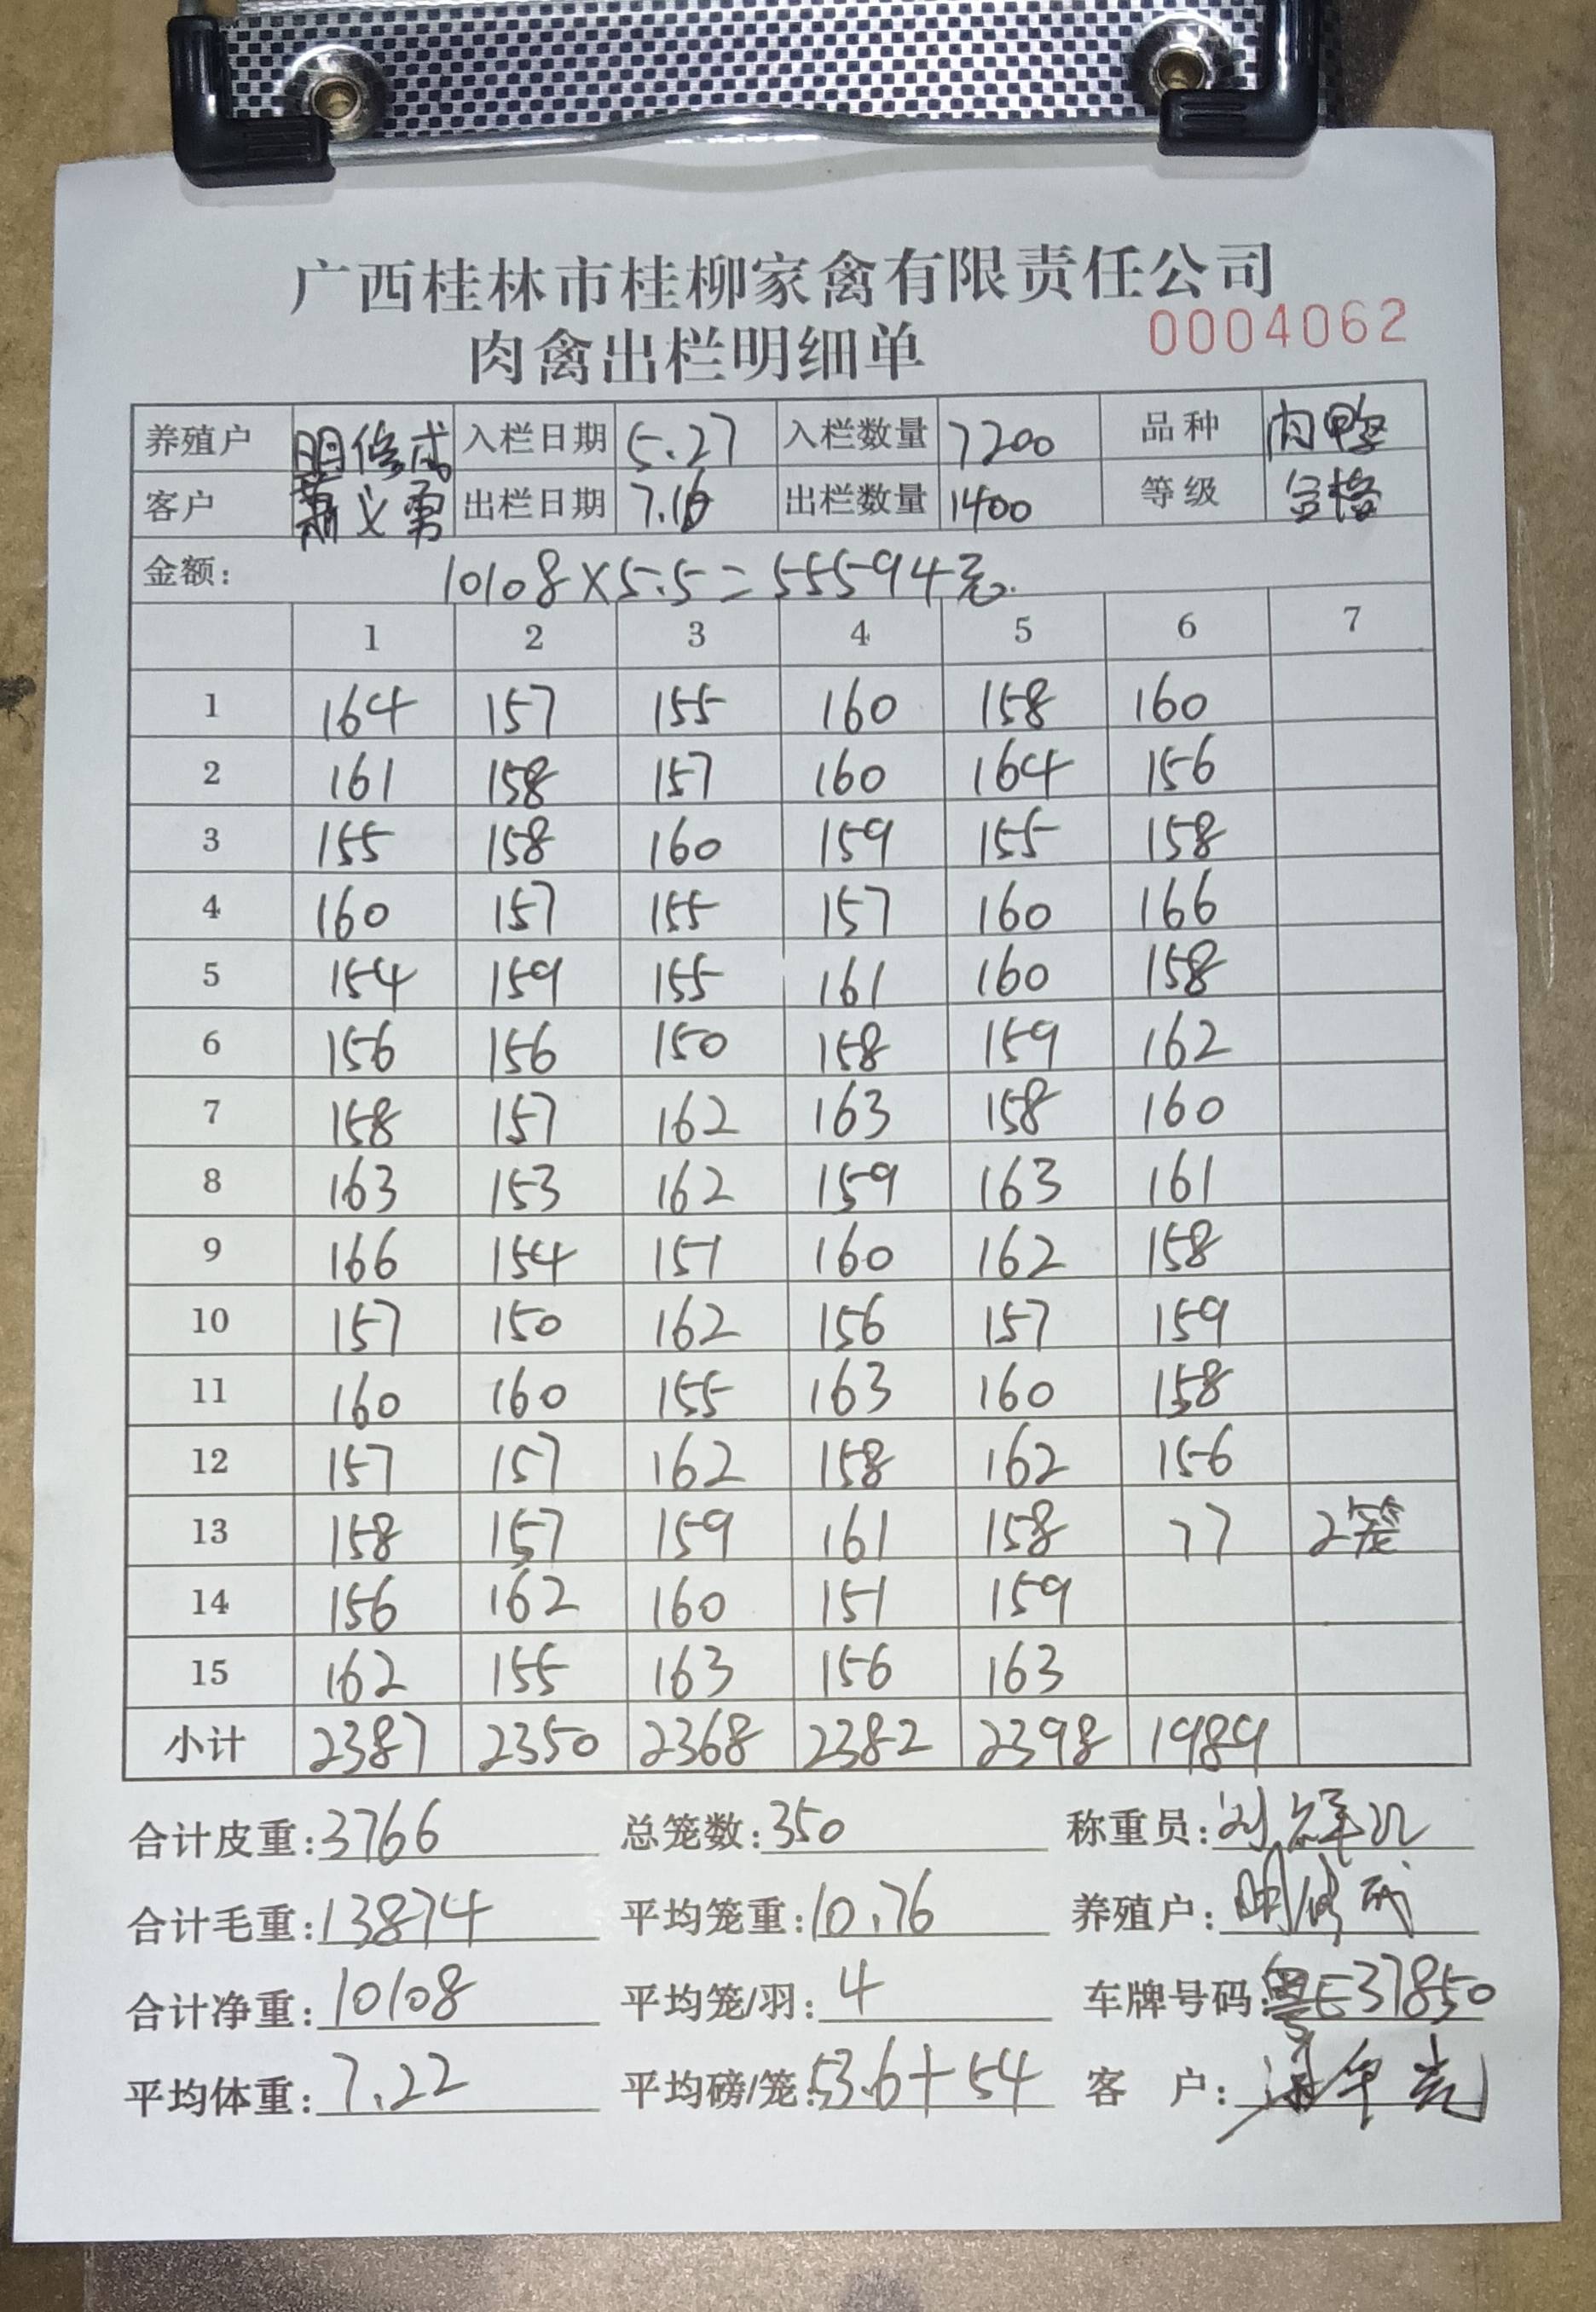 广西桂林市桂柳家禽有限责任公司
肉禽出栏明细单 0004062
养殖户 明修成 入栏日期 5.27 入栏数量 7200 品种 肉鸭
客户 萧义勇 出栏日期 7.16 出栏数量 1400 等级 合格
金额: 10108×5.5=55594元.
1 2 3 4 5 6 7
1 164 157 155 160 158 160
2 161 158 157 160 164 156
3 155 158 160 159 155 158
4 160 157 155 157 160 166
5 154 159 155 161 160 158
6 156 156 150 158 159 162
7 158 157 162 163 158 160
8 163 153 162 159 163 161
9 166 154 151 160 162 158
10 157 150 162 156 157 159
11 160 160 155 163 160 158
12 157 157 162 158 162 156
13 158 157 159 161 158 77 2笼
14 156 162 160 151 159
15 162 155 163 156 163
小计 2387 2350 2368 2382 2398 1989
合计皮重:3766 总笼数:350 称重员:刘
合计毛重:13874 平均笼重:10.76 养殖户:明修成
合计净重:10108 平均笼/羽:4 车牌号码:粤E37850
平均体重:7.22 平均磅/笼:53.6+54 客 户: